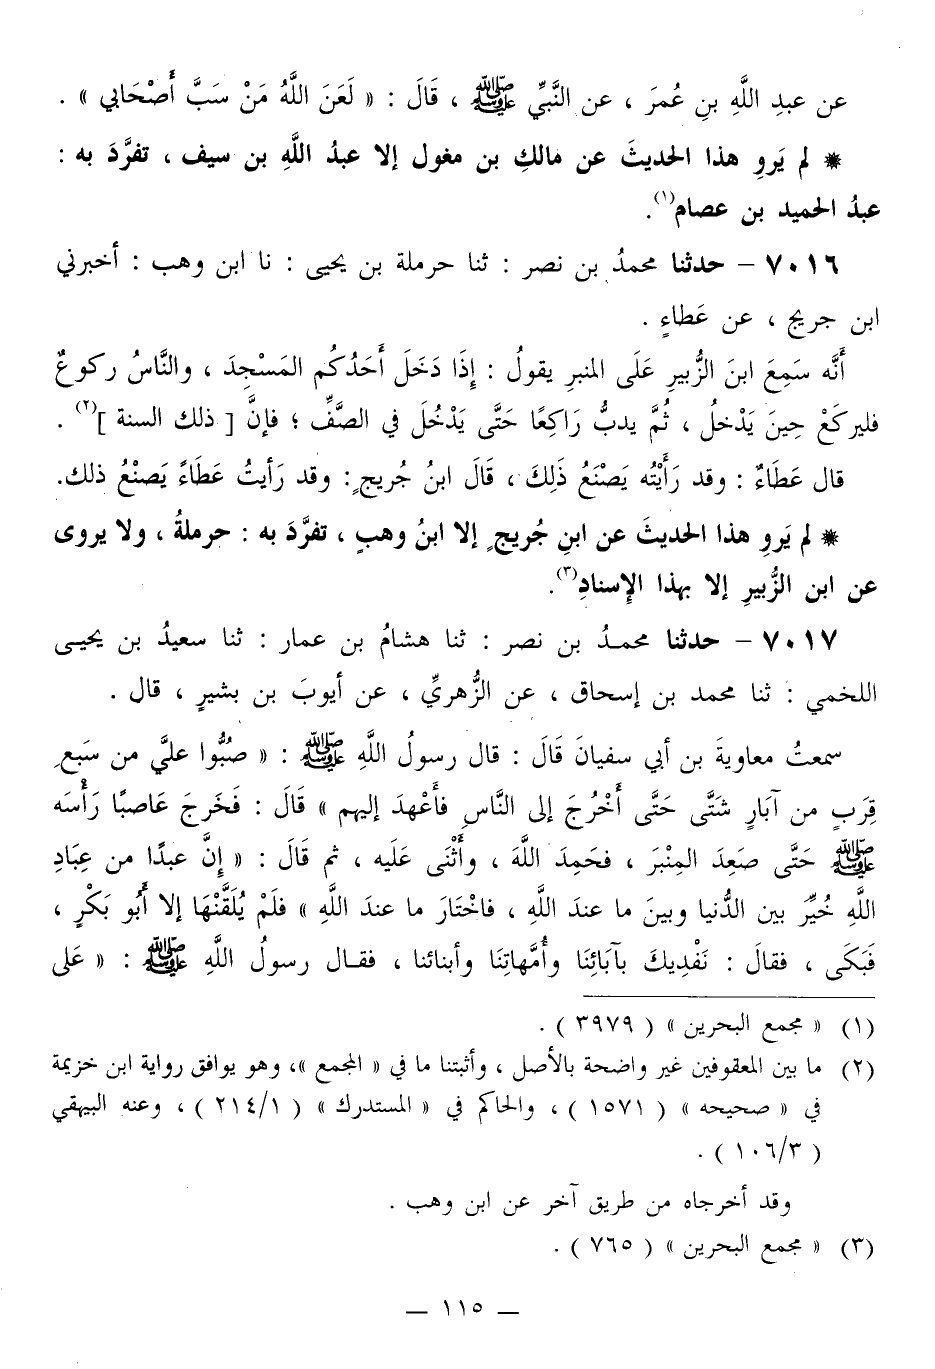 عن عبدِ اللَّهِ بنِ عُمرَ ، عن النَّبيِّ ﷺ ، قَالَ : « لَعَنَ اللَّهُ مَنْ سَبَّ أَصْحَابي » .
* لم يَروِ هذا الحديثَ عن مالكِ بن مغول إلا عبدُ اللَّهِ بن سيف ، تفرَّدَ به :
عبدُ الحميد بن عصام(١).
٧٠١٦ – حدثنا محمدُ بن نصر : ثنا حرملة بن يحيى : نا ابن وهب : أخبرني
ابن جريج ، عن عَطاءٍ .
أَنَّه سَمِعَ ابنَ الزُّبيرِ عَلَى المنبرِ يقولُ : إِذَا دَخَلَ أَحَدُكُم المَسْجِدَ ، والنَّاسُ ركوعٌ
فليركَعْ حِينَ يَدْخلُ ، ثُمَّ يدبُّ رَاكِعًا حَتَّى يَدْخُلَ في الصَّفِّ ؛ فإنَّ [ ذلك السنة ](٢) .
قال عَطَاءٌ : وقد رَأَيْتُه يَصْنَعُ ذَلِكَ ، قَالَ ابنُ جُريجٍ : وقد رَأيتُ عَطَاءً يَصنْعُ ذلك.
* لم يَروِ هذا الحديثَ عن ابنِ جُريجٍ إلا ابنُ وهبٍ ، تفرَّدَ به : حرملةُ ، ولا يروى
عن ابن الزُّبيرِ إلا بهذا الإسنادِ(٣).
٧٠١٧ – حدثنا محمدُ بن نصر : ثنا هشامُ بن عمار : ثنا سعيدُ بن يحيى
اللخمي : ثنا محمد بن إسحاق ، عن الزُّهريِّ ، عن أيوبَ بن بشيرٍ ، قال .
سمعتُ معاويةَ بن أبي سفيانَ قَالَ : قال رسولُ اللَّهِ ﷺ : « صُبُّوا عليَّ من سَبعِ
قِرَبٍ من آبَارٍ شَتَّى حَتَّى أَخْرُجَ إلى النَّاسِ فأَعْهدَ إليهم » قَالَ : فَخَرجَ عَاصبًا رَأْسَه
ﷺ حَتَّى صَعِدَ المِنْبَرَ ، فحَمِدَ اللَّهَ ، وأَثْنَى عَلَيه ، ثم قَالَ : « إِنَّ عبدًا من عِبَادِ
اللَّهِ خُيِّرَ بين الدُّنيا وبينَ ما عندَ اللَّهِ ، فاخْتَارَ ما عندَ اللَّهِ » فلَمْ يُلَقَّنْهَا إلا أَبُو بَكْرٍ ،
فَبَكَى ، فقالَ : نَفْدِيكَ بآبَائِنَا وأُمَّهاتِنَا وأبنائنا ، فقال رسولُ اللَّهِ ﷺ : « على
(١) « مجمع البحرين » ( ٣٩٧٩ ) .
(٢) ما بين المعقوفين غير واضحة بالأصل ، وأثبتنا ما في « المجمع »، وهو يوافق رواية ابن خزيمة
في « صحيحه » ( ١٥٧١ ) ، والحاكم في « المستدرك » ( ٢١٤/١ ) ، وعنه البيهقي
( ١٠٦/٣ ) .
وقد أخرجاه من طريق آخر عن ابن وهب .
(٣) « مجمع البحرين » ( ٧٦٥ ) .
– ١١٥ –